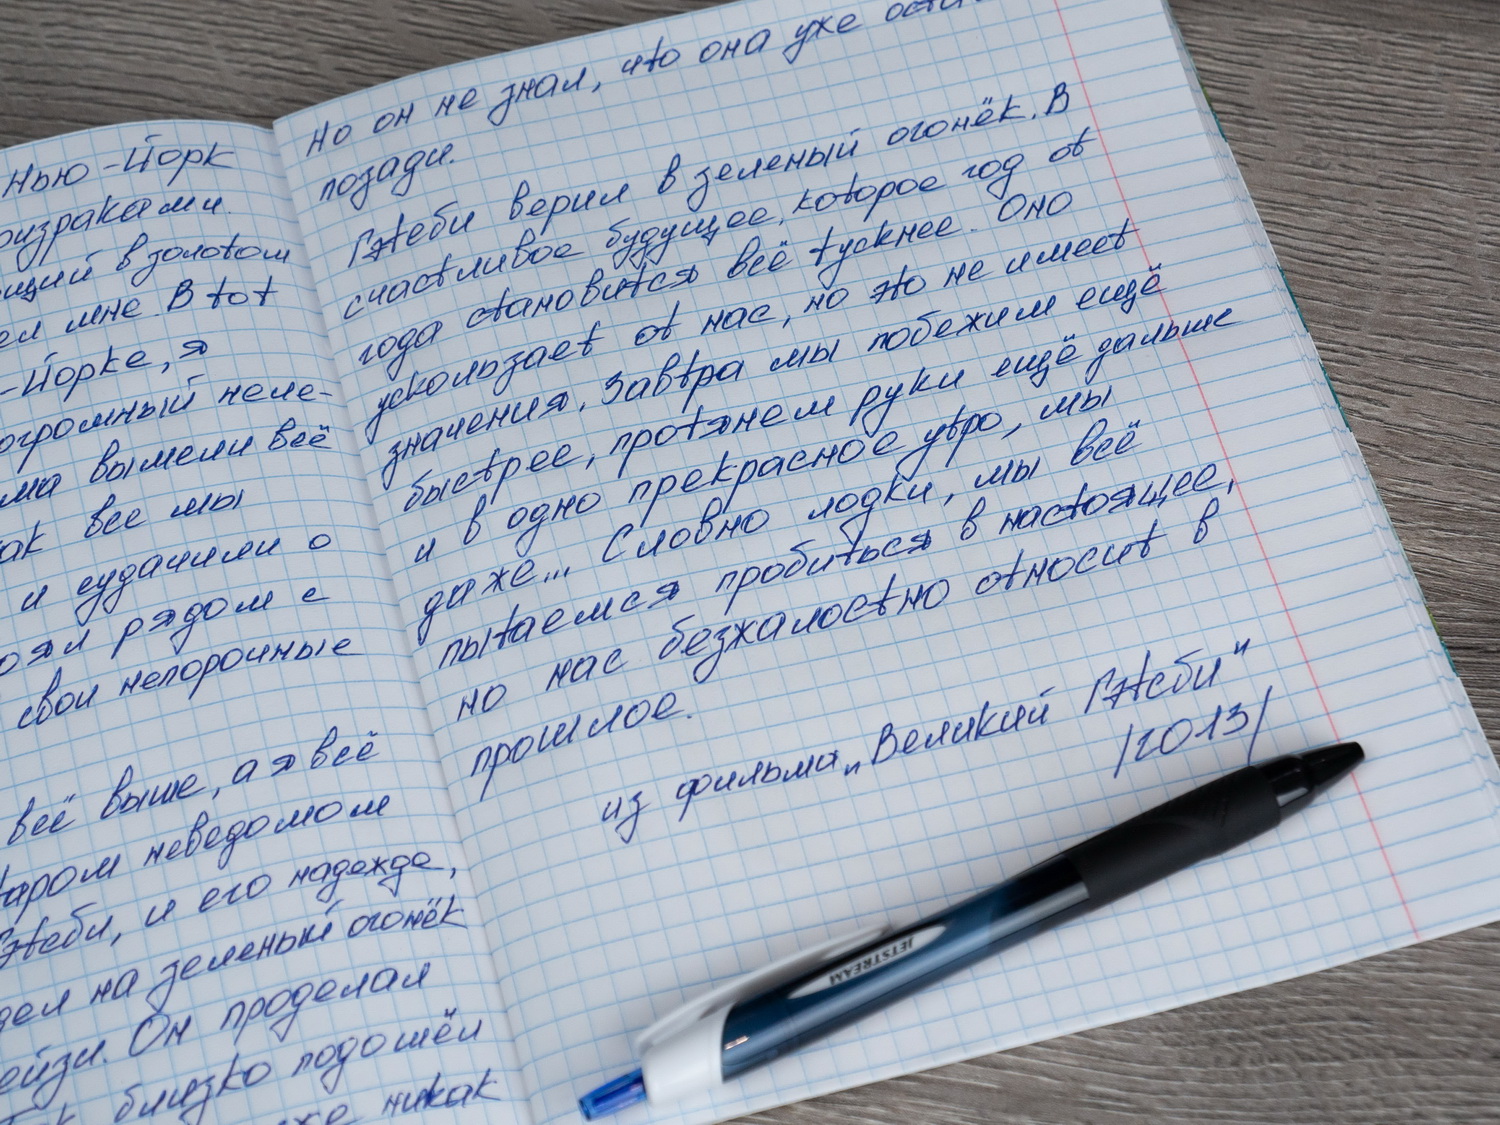 Нью-Йорк
ризраками.
щий в золотом
ел мне. В тот
-Йорке, я
огромный неле-
ма вымели всё
ак все мы
и судачили о
оял рядом с
свои непорочные
всё выше, а я всё
таром неведомом
Гэтсби, и его надежде,
дел на зеленый огонёк
ейзи. Он проделал
близко подошёл
же никак
Но он не знал, что она уже
позади.
Гэтсби верил в зеленый огонёк. В
счастливое будущее, которое год от
года становится всё тускнее. Оно
ускользает от нас, но это не имеет
значения. Завтра мы побежим ещё
быстрее, протянем руки ещё дальше
и в одно прекрасное утро, мы
даже... Словно лодки, мы всё
пытаемся пробиться в настоящее,
но нас безжалостно относит в
прошлое.
из фильма „Великий Гэтсби"
/2013/
JETSTREAM